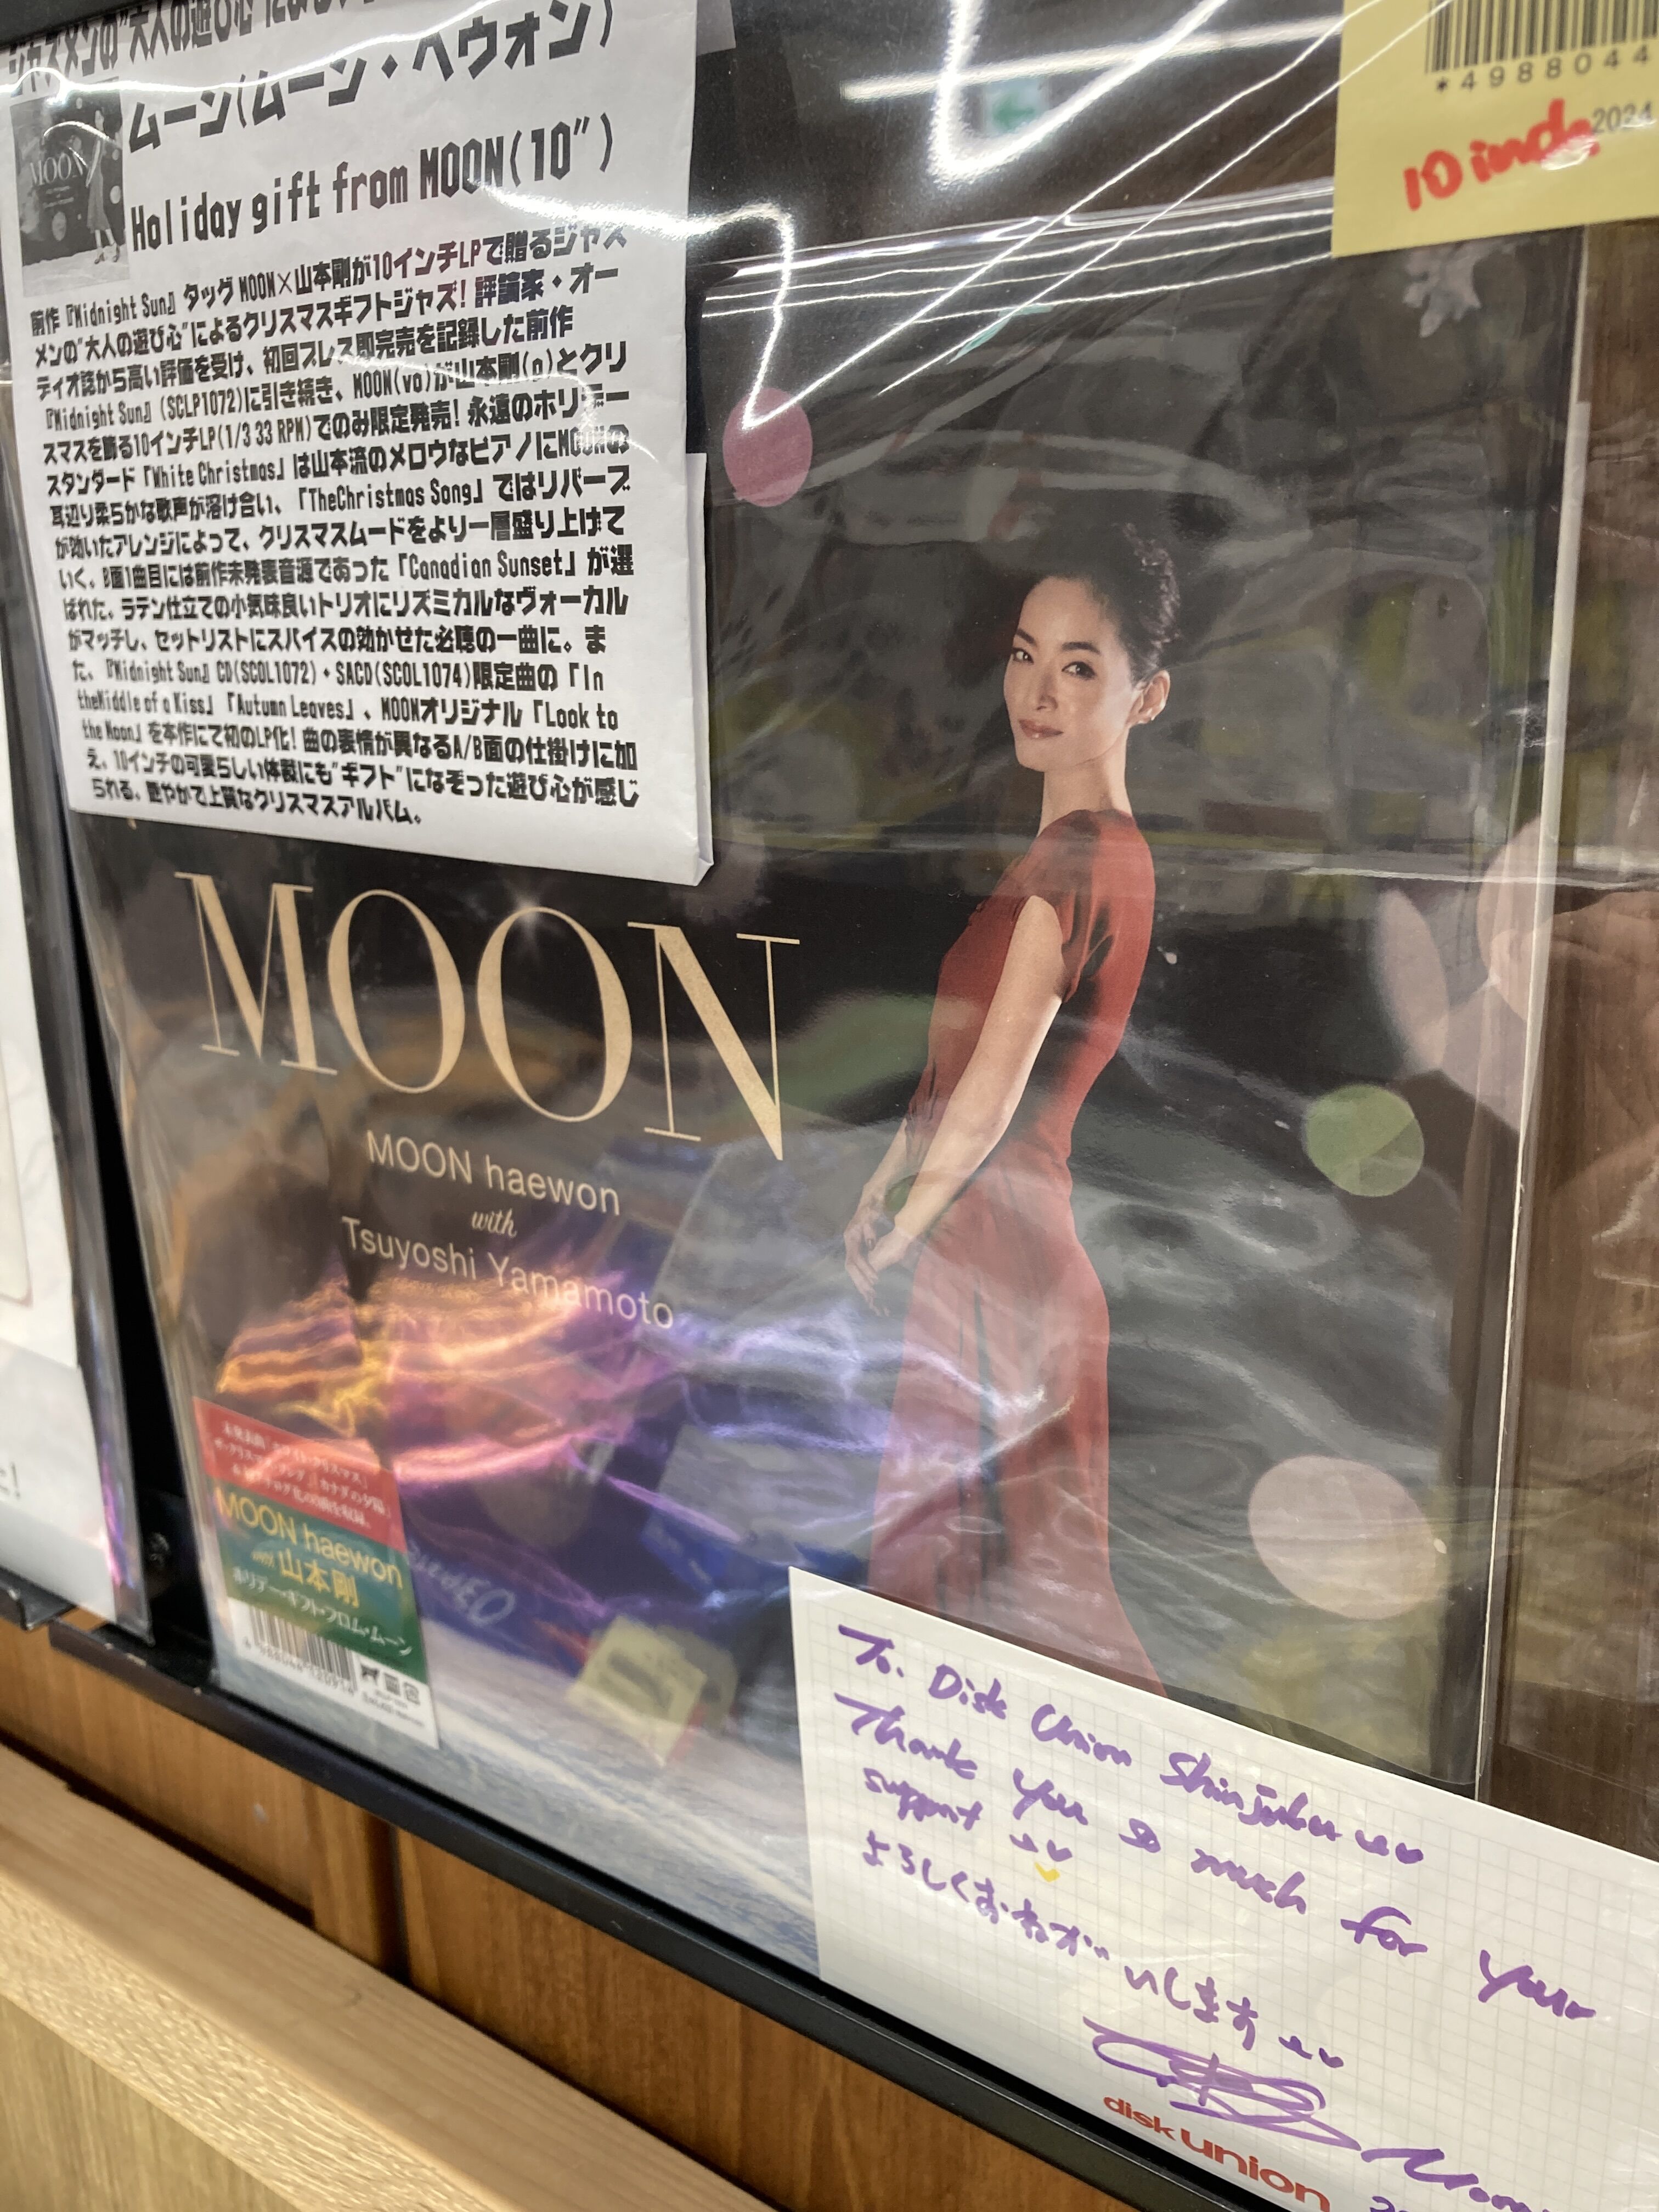 ムーン(ムーン・ヘウォン)
Holiday gift from MOON(10")
前作『Midnight Sun』タッグMOON×山本剛が10インチLPで贈るジャズ
メンの"大人の遊び心"によるクリスマスギフトジャズ!評論家・オー
ディオ誌から高い評価を受け、初回プレス即完売を記録した前作
『Midnight Sun』(SCLP1072)に引き続き、MOON(vo)が山本剛(p)とクリ
スマスを飾る10インチLP(1/3 33 RPM)でのみ限定発売!永遠のホリデー
スタンダード「White Christmas」は山本流のメロウなピアノにMOONの
耳辺り柔らかな歌声が溶け合い、「TheChristmas Song」ではリバーブ
が効いたアレンジによって、クリスマスムードをより一層盛り上げて
いく。B面1曲目には前作未発表音源であった「Canadian Sunset」が選
ばれた。ラテン仕立ての小気味良いトリオにリズミカルなヴォーカル
がマッチし、セットリストにスパイスの効かせた必聴の一曲に。ま
た、『Midnight Sun』CD(SCOL1072)・SACD(SCOL1074)限定曲の「In
theMiddle of a Kiss」「Autumn Leaves」、MOONオリジナル「Look to
the Moon」を本作にて初のLP化!曲の表情が異なるA/B面の仕掛けに加
え、10インチの可愛らしい体裁にも"ギフト"になぞった遊び心が感じ
られる、艶やかで上質なクリスマスアルバム。
*4988044
2024
10 inch
MOON
MOON
MOON haewon
with
Tsuyoshi Yamamoto
MOON haewon
with 山本剛
ホリデー・ギフト・フロム・ムーン
To. Disk Union Shinjuku
Thank you so much for your
support
よろしくおねがいします
Moon
disk union